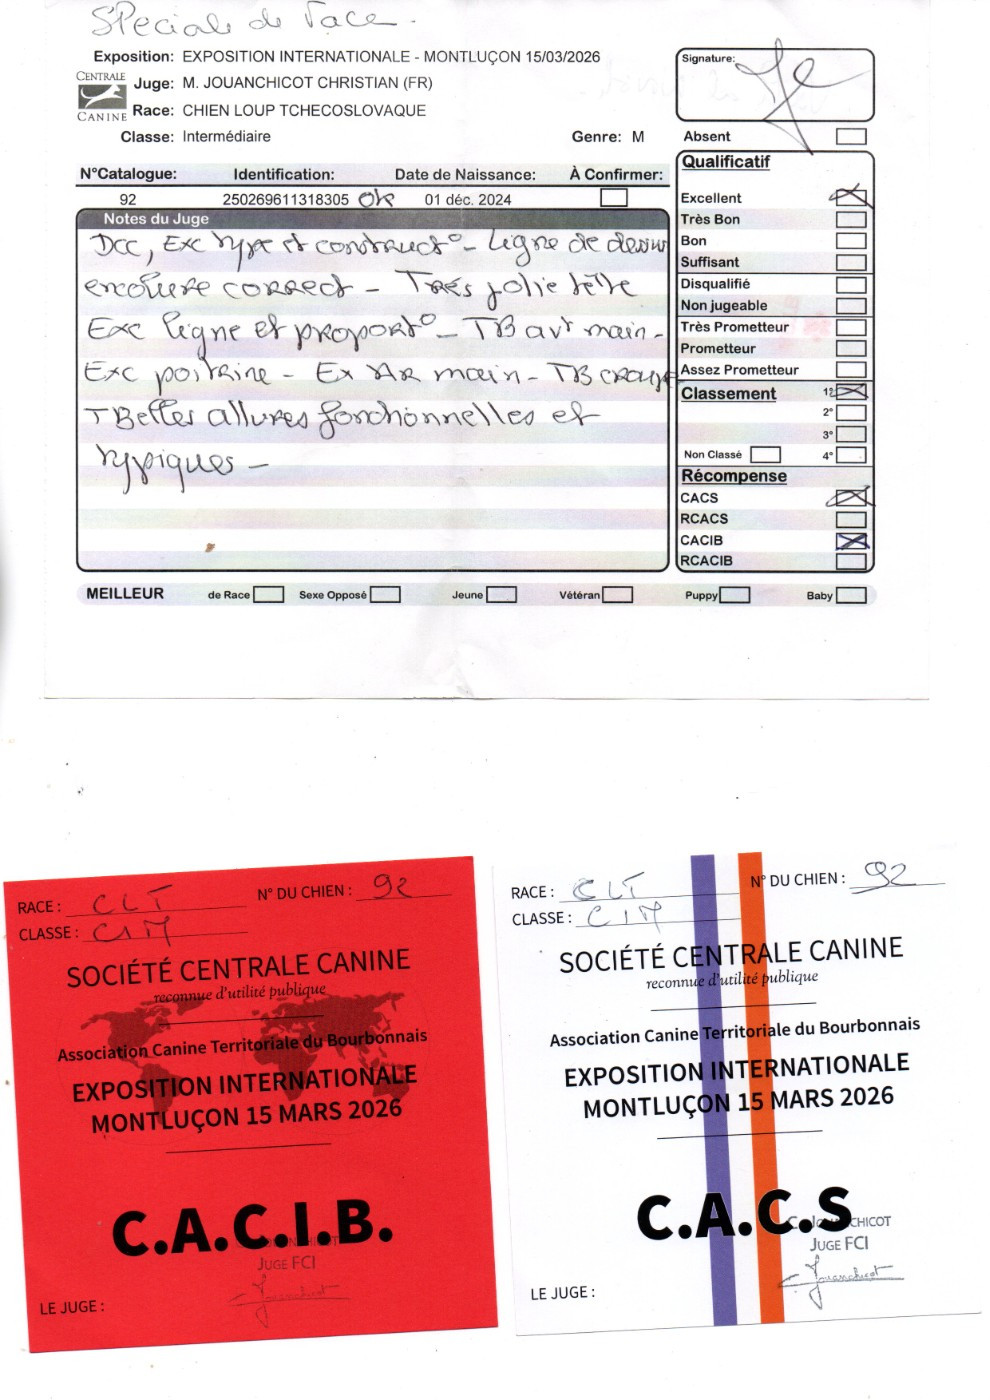 Spéciale de race.
Exposition: EXPOSITION INTERNATIONALE - MONTLUÇON 15/03/2026
CENTRALE CANINE
Juge: M. JOUANCHICOT CHRISTIAN (FR)
Race: CHIEN LOUP TCHECOSLOVAQUE
Classe: Intermédiaire Genre: M
N°Catalogue: Identification: Date de Naissance: À Confirmer:
92 250269611318305 OK 01 déc. 2024
Notes du Juge
Dcc, Exc type et construct° - Ligne de dessus
encolure correct - Très jolie tête
Exc ligne et proport° - TB avt main -
Exc poitrine - Ex Ar main - TB croupe
TBelles allures fonctionnelles et
typiques -
Signature:
Absent
Qualificatif
Excellent
Très Bon
Bon
Suffisant
Disqualifié
Non jugeable
Très Prometteur
Prometteur
Assez Prometteur
Classement 1°
2°
3°
Non Classé 4°
Récompense
CACS
RCACS
CACIB
RCACIB
MEILLEUR de Race Sexe Opposé Jeune Vétéran Puppy Baby
RACE : CLT N° DU CHIEN : 92
CLASSE : CIM
SOCIÉTÉ CENTRALE CANINE
reconnue d'utilité publique
Association Canine Territoriale du Bourbonnais
EXPOSITION INTERNATIONALE
MONTLUÇON 15 MARS 2026
C.A.C.I.B.
JUGE FCI
Jouanchicot
LE JUGE :
RACE : CLT N° DU CHIEN : 92
CLASSE : CIM
SOCIÉTÉ CENTRALE CANINE
reconnue d'utilité publique
Association Canine Territoriale du Bourbonnais
EXPOSITION INTERNATIONALE
MONTLUÇON 15 MARS 2026
C.A.C.S
C. JOUANCHICOT
JUGE FCI
Jouanchicot
LE JUGE :